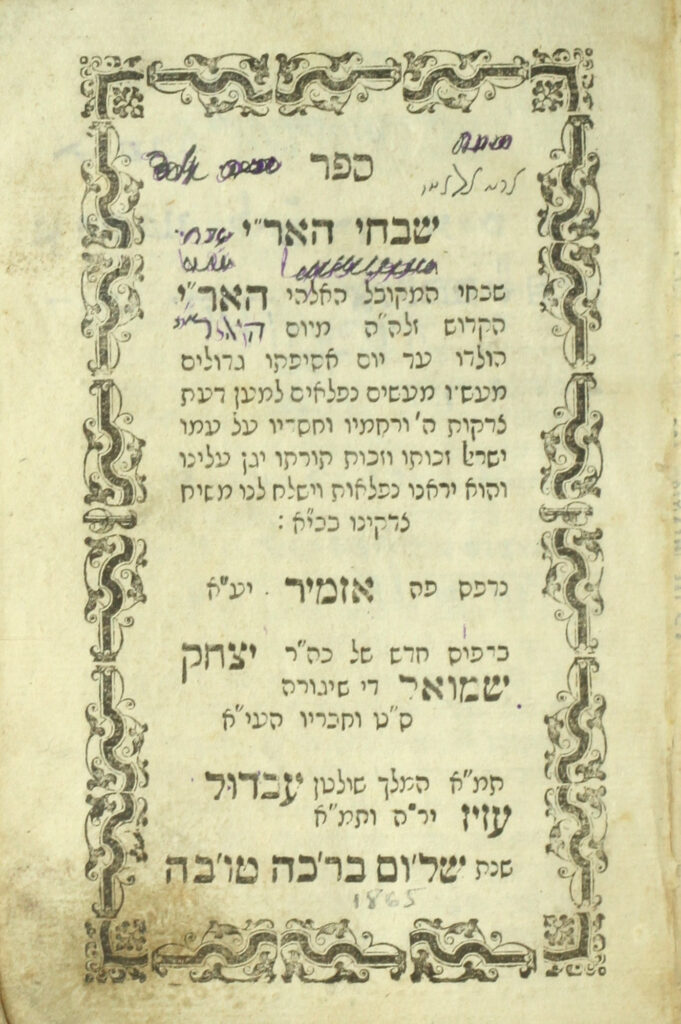 ספר
שבחי האר״י
שבחי המקובל האלהי האר״י
הקדוש זלה״ה מיום
הולדו עד יום אסיפתו גדולים
מעש׳ו מעשים נפלאים למען דעת
צדקות ה׳ ורחמיו וחס׳יו על עמו
ישראל זכותו וזכות תורתו יגן עלינו
והוא יראנו נפלאות וישלח לנו משיח
צדקינו בב״א :
נדפס פה אזמיר יע״א
בדפוס חדש של כה״ר יצחק
שמואל די שיגורה
ס״ט וחבריו העי״א
תמ״א המלך שולטן עבדול
עזיז יר״ה ותמ״א
שנת של׳ום בר׳כה טו׳בה
1865